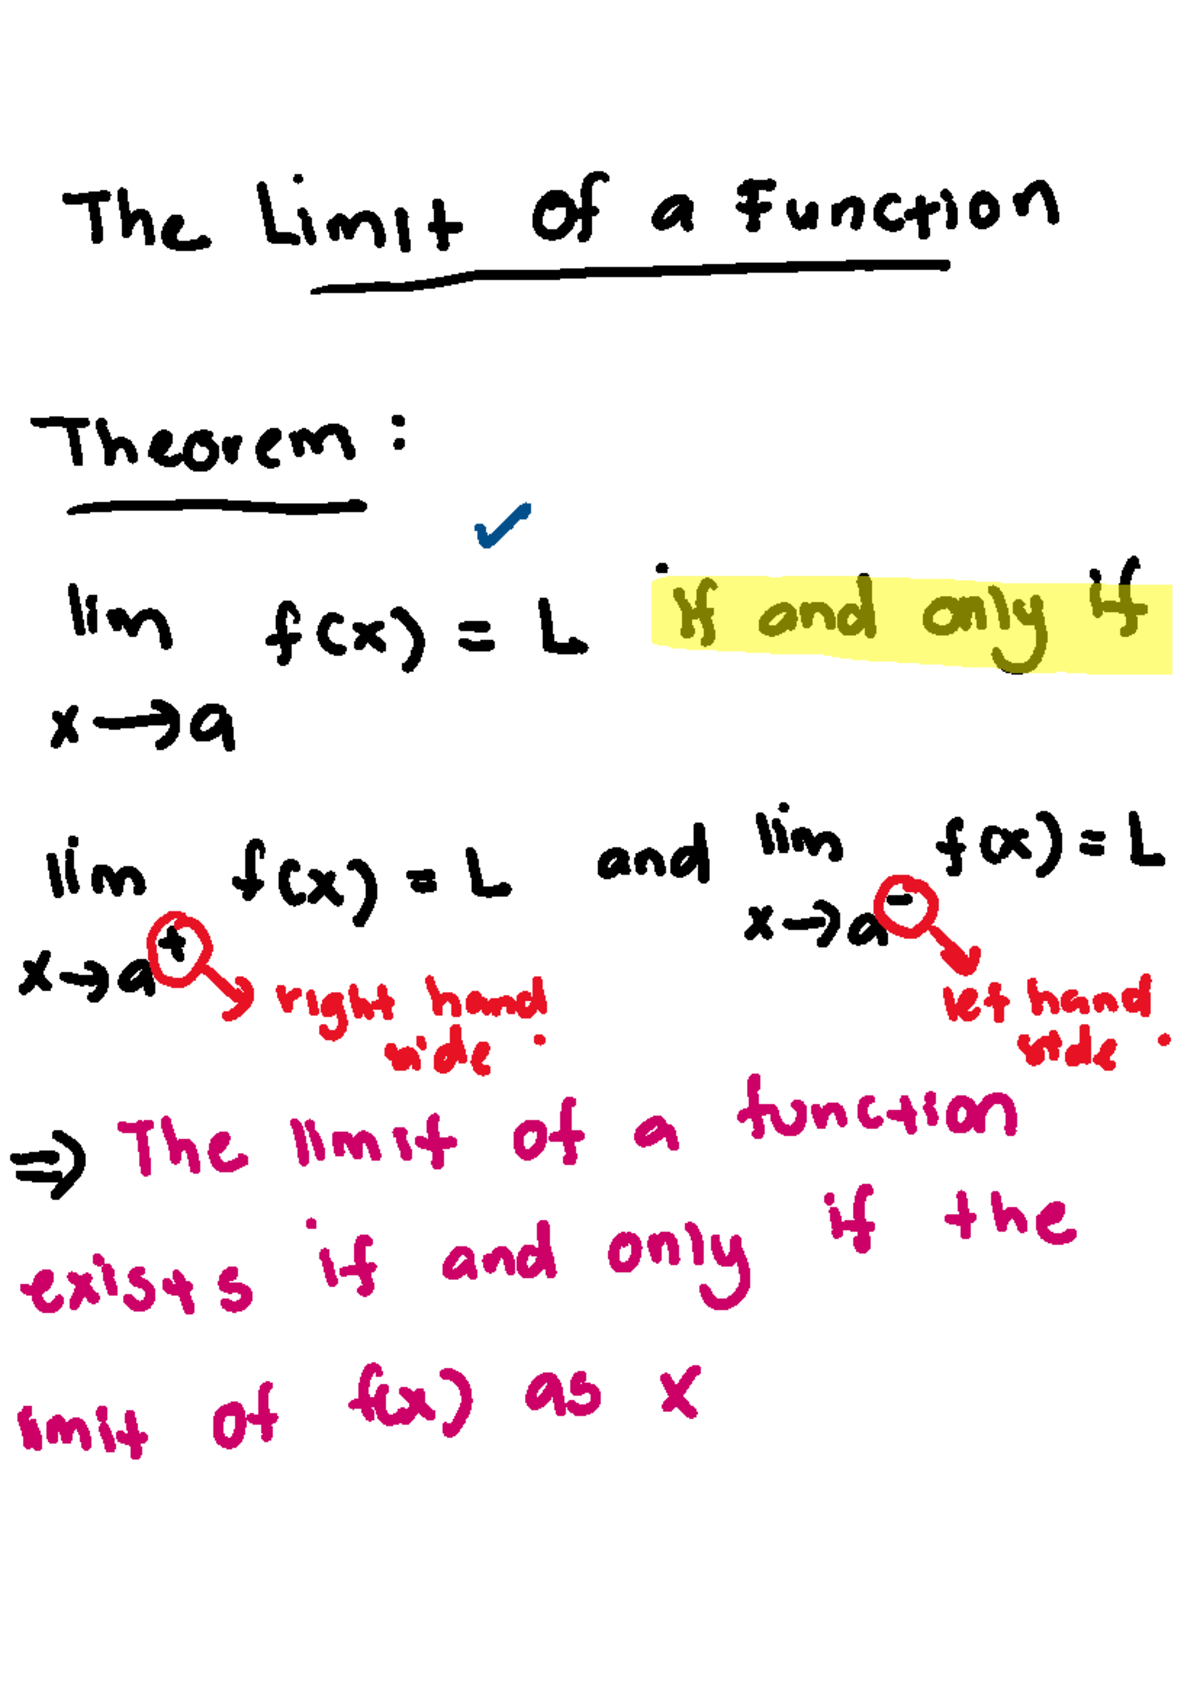 The Limit of a Function
Theorem :
lim f(x) = L if and only if
x→a
lim f(x) = L and lim f(x) = L
x→a⁺ x→a⁻
right hand side. let hand side.
⇒ The limit of a function
exists if and only if the
limit of f(x) as x